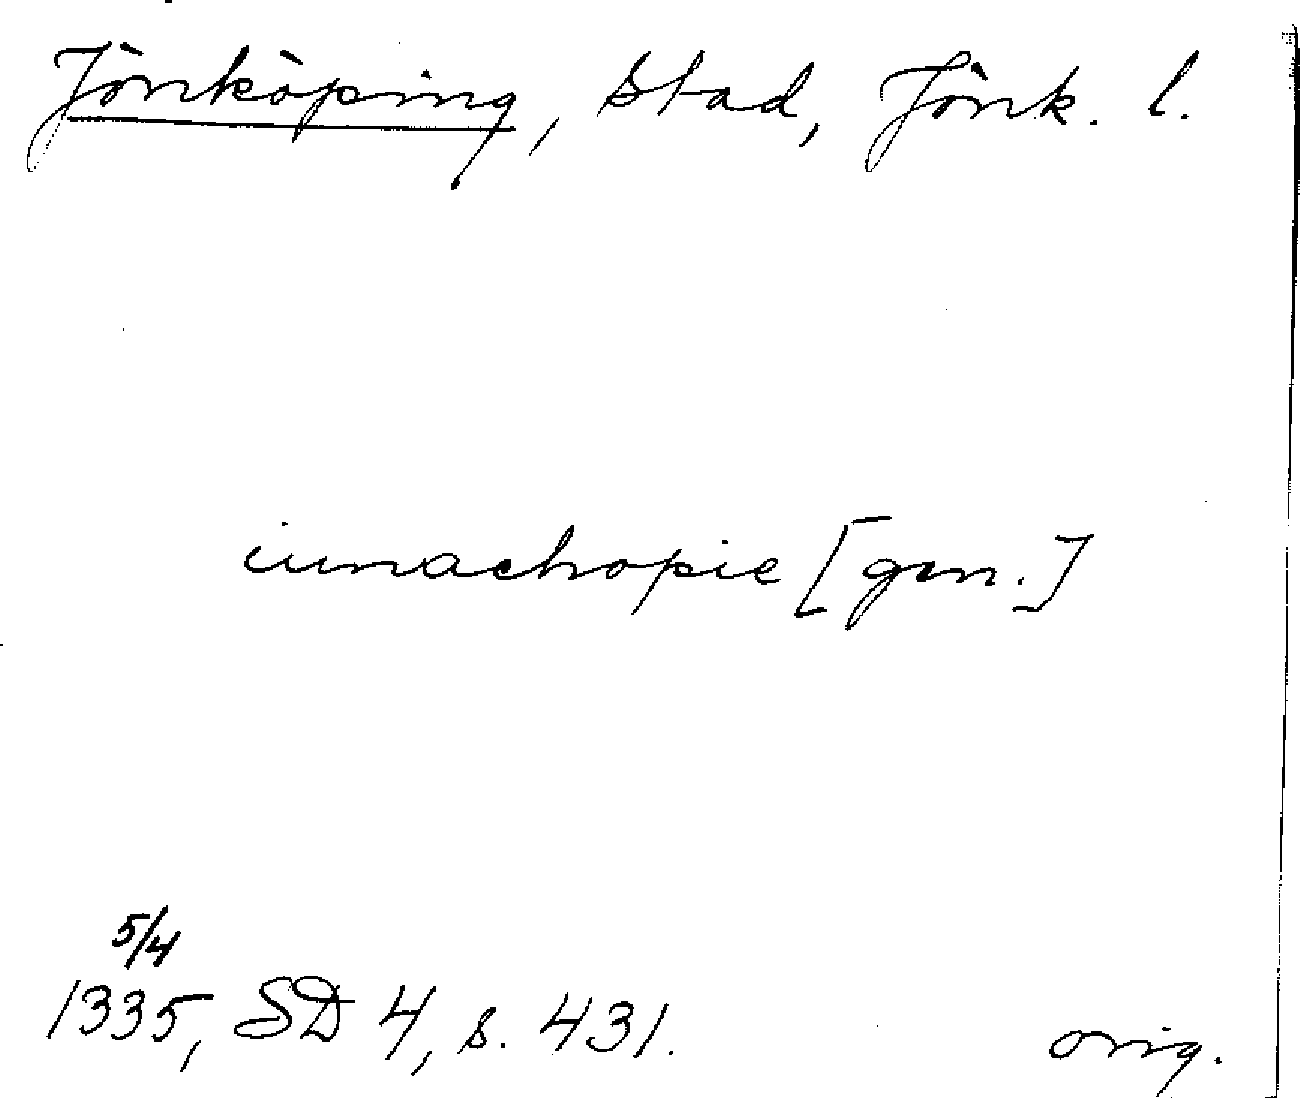 Jönköping, Stad, Jönk. l.
iunachopie [gen.]
5/4
1335, SD 4, s. 431.
orig.